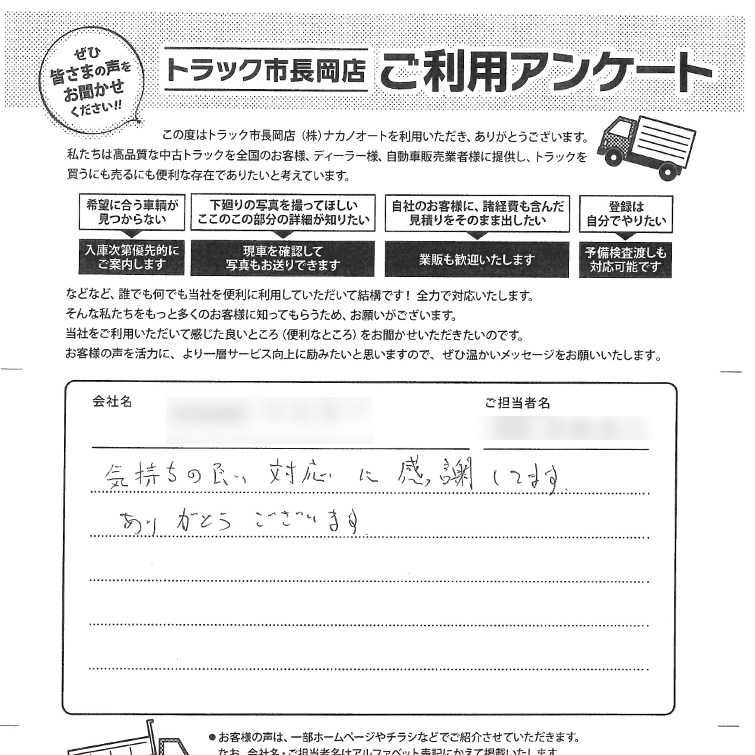 ぜひ
皆さまの声を
お聞かせ
ください!!
トラック市長岡店 ご利用アンケート
この度はトラック市長岡店(株)ナカノオートを利用いただき、ありがとうございます。
私たちは高品質な中古トラックを全国のお客様、ディーラー様、自動車販売業者様に提供し、トラックを
買うにも売るにも便利な存在でありたいと考えています。
希望に合う車輌が
見つからない
入庫次第優先的に
ご案内します
下廻りの写真を撮ってほしい
ここのこの部分の詳細が知りたい
現車を確認して
写真もお送りできます
自社のお客様に、諸経費も含んだ
見積りをそのまま出したい
業販も歓迎いたします
登録は
自分でやりたい
予備検査渡しも
対応可能です
などなど、誰でも何でも当社を便利に利用していただいて結構です!全力で対応いたします。
そんな私たちをもっと多くのお客様に知ってもらうため、お願いがございます。
当社をご利用いただいて感じた良いところ(便利なところ)をお聞かせいただきたいのです。
お客様の声を活力に、より一層サービス向上に励みたいと思いますので、ぜひ温かいメッセージをお願いいたします。
会社名
ご担当者名
気持ちの良い 対応に 感謝してます。
ありがとうございます。
●お客様の声は、一部ホームページやチラシなどでご紹介させていただきます。
なお、会社名・ご担当者名はアルファベット表記にかえて掲載いたします。